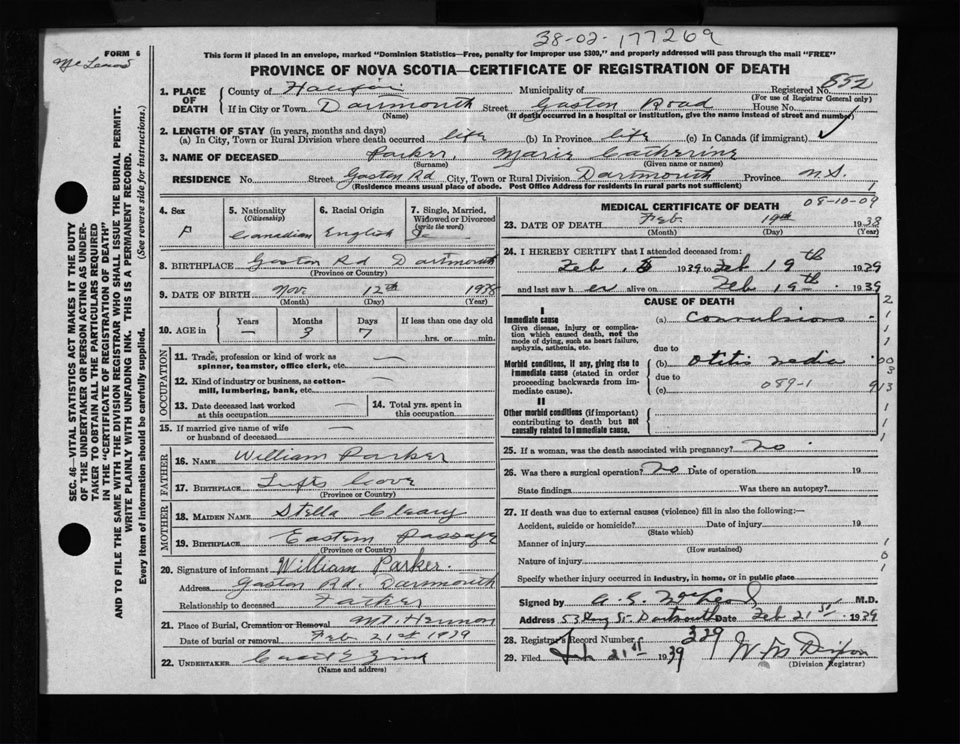 38-02-177269
FORM 6
This form if placed in an envelope, marked "Dominion Statistics—Free, penalty for improper use $300," and properly addressed will pass through the mail "FREE"
PROVINCE OF NOVA SCOTIA—CERTIFICATE OF REGISTRATION OF DEATH
1. PLACE OF DEATH County of Halifax Municipality of Registered No. 852
(For use of Registrar General only)
If in City or Town Dartmouth Street Gaston Road House No.
(Name) (If death occurred in a hospital or institution, give the name instead of street and number)
2. LENGTH OF STAY (in years, months and days)
(a) In City, Town or Rural Division where death occurred life (b) In Province life (c) In Canada (if immigrant)
3. NAME OF DECEASED Parker, Marie Catherine
(Surname) (Given name or names)
RESIDENCE No. Street Gaston Rd City, Town or Rural Division Dartmouth Province N.S.
(Residence means usual place of abode. Post Office Address for residents in rural parts not sufficient)
SEC. 46—VITAL STATISTICS ACT MAKES IT THE DUTY
OF THE UNDERTAKER OR PERSON ACTING AS UNDER-
TAKER TO OBTAIN ALL THE PARTICULARS REQUIRED
IN THE "CERTIFICATE OF REGISTRATION OF DEATH"
AND TO FILE THE SAME WITH THE DIVISION REGISTRAR WHO SHALL ISSUE THE BURIAL PERMIT.
WRITE PLAINLY WITH UNFADING INK. THIS IS A PERMANENT RECORD.
Every item of information should be carefully supplied. (See reverse side for instructions.)
4. Sex F
5. Nationality (Citizenship) Canadian
6. Racial Origin English
7. Single, Married, Widowed or Divorced (write the word)
8. BIRTHPLACE Gaston Rd Dartmouth
(Province or Country)
9. DATE OF BIRTH Nov. 12th 1938
(Month) (Day) (Year)
10. AGE in Years — Months 3 Days 7 If less than one day old hrs. or min.
OCCUPATION
11. Trade, profession or kind of work as spinner, teamster, office clerk, etc. —
12. Kind of industry or business, as cotton-mill, lumbering, bank, etc. —
13. Date deceased last worked at this occupation —
14. Total yrs. spent in this occupation —
15. If married give name of wife or husband of deceased —
FATHER
16. NAME William Parker
17. BIRTHPLACE Tufts Cove
(Province or Country)
MOTHER
18. MAIDEN NAME Stella Cleary
19. BIRTHPLACE Eastern Passage
(Province or Country)
20. Signature of informant William Parker.
Address Gaston Rd. Dartmouth
Relationship to deceased Father
21. Place of Burial, Cremation or Removal Mt. Hermon
Date of burial or removal Feb 21st 1939
22. UNDERTAKER
(Name and address)
MEDICAL CERTIFICATE OF DEATH 08-10-09
23. DATE OF DEATH Feb 19th 1938
(Month) (Day) (Year)
24. I HEREBY CERTIFY that I attended deceased from:
Feb. 1939 to Feb 19th 1939
and last saw her alive on Feb 19th 1939
CAUSE OF DEATH
I
Immediate cause (a) Convulsions
Give disease, injury or complication which caused death, not the mode of dying, such as heart failure, asphyxia, asthenia, etc.
due to
Morbid conditions, if any, giving rise to immediate cause (stated in order proceeding backwards from immediate cause). (b) Otitis media
due to
(c) 089-1
II
Other morbid conditions (if important) contributing to death but not causally related to immediate cause.
25. If a woman, was the death associated with pregnancy? No
26. Was there a surgical operation? No Date of operation 19
State findings Was there an autopsy?
27. If death was due to external causes (violence) fill in also the following:—
Accident, suicide or homicide? Date of injury 19
(State which)
Manner of injury
(How sustained)
Nature of injury
Specify whether injury occurred in industry, in home, or in public place
Signed by M.D.
Address Dartmouth Date Feb 21st 1939
28. Registrar's Record Number 329
29. Filed Feb 21st 1939
(Division Registrar)